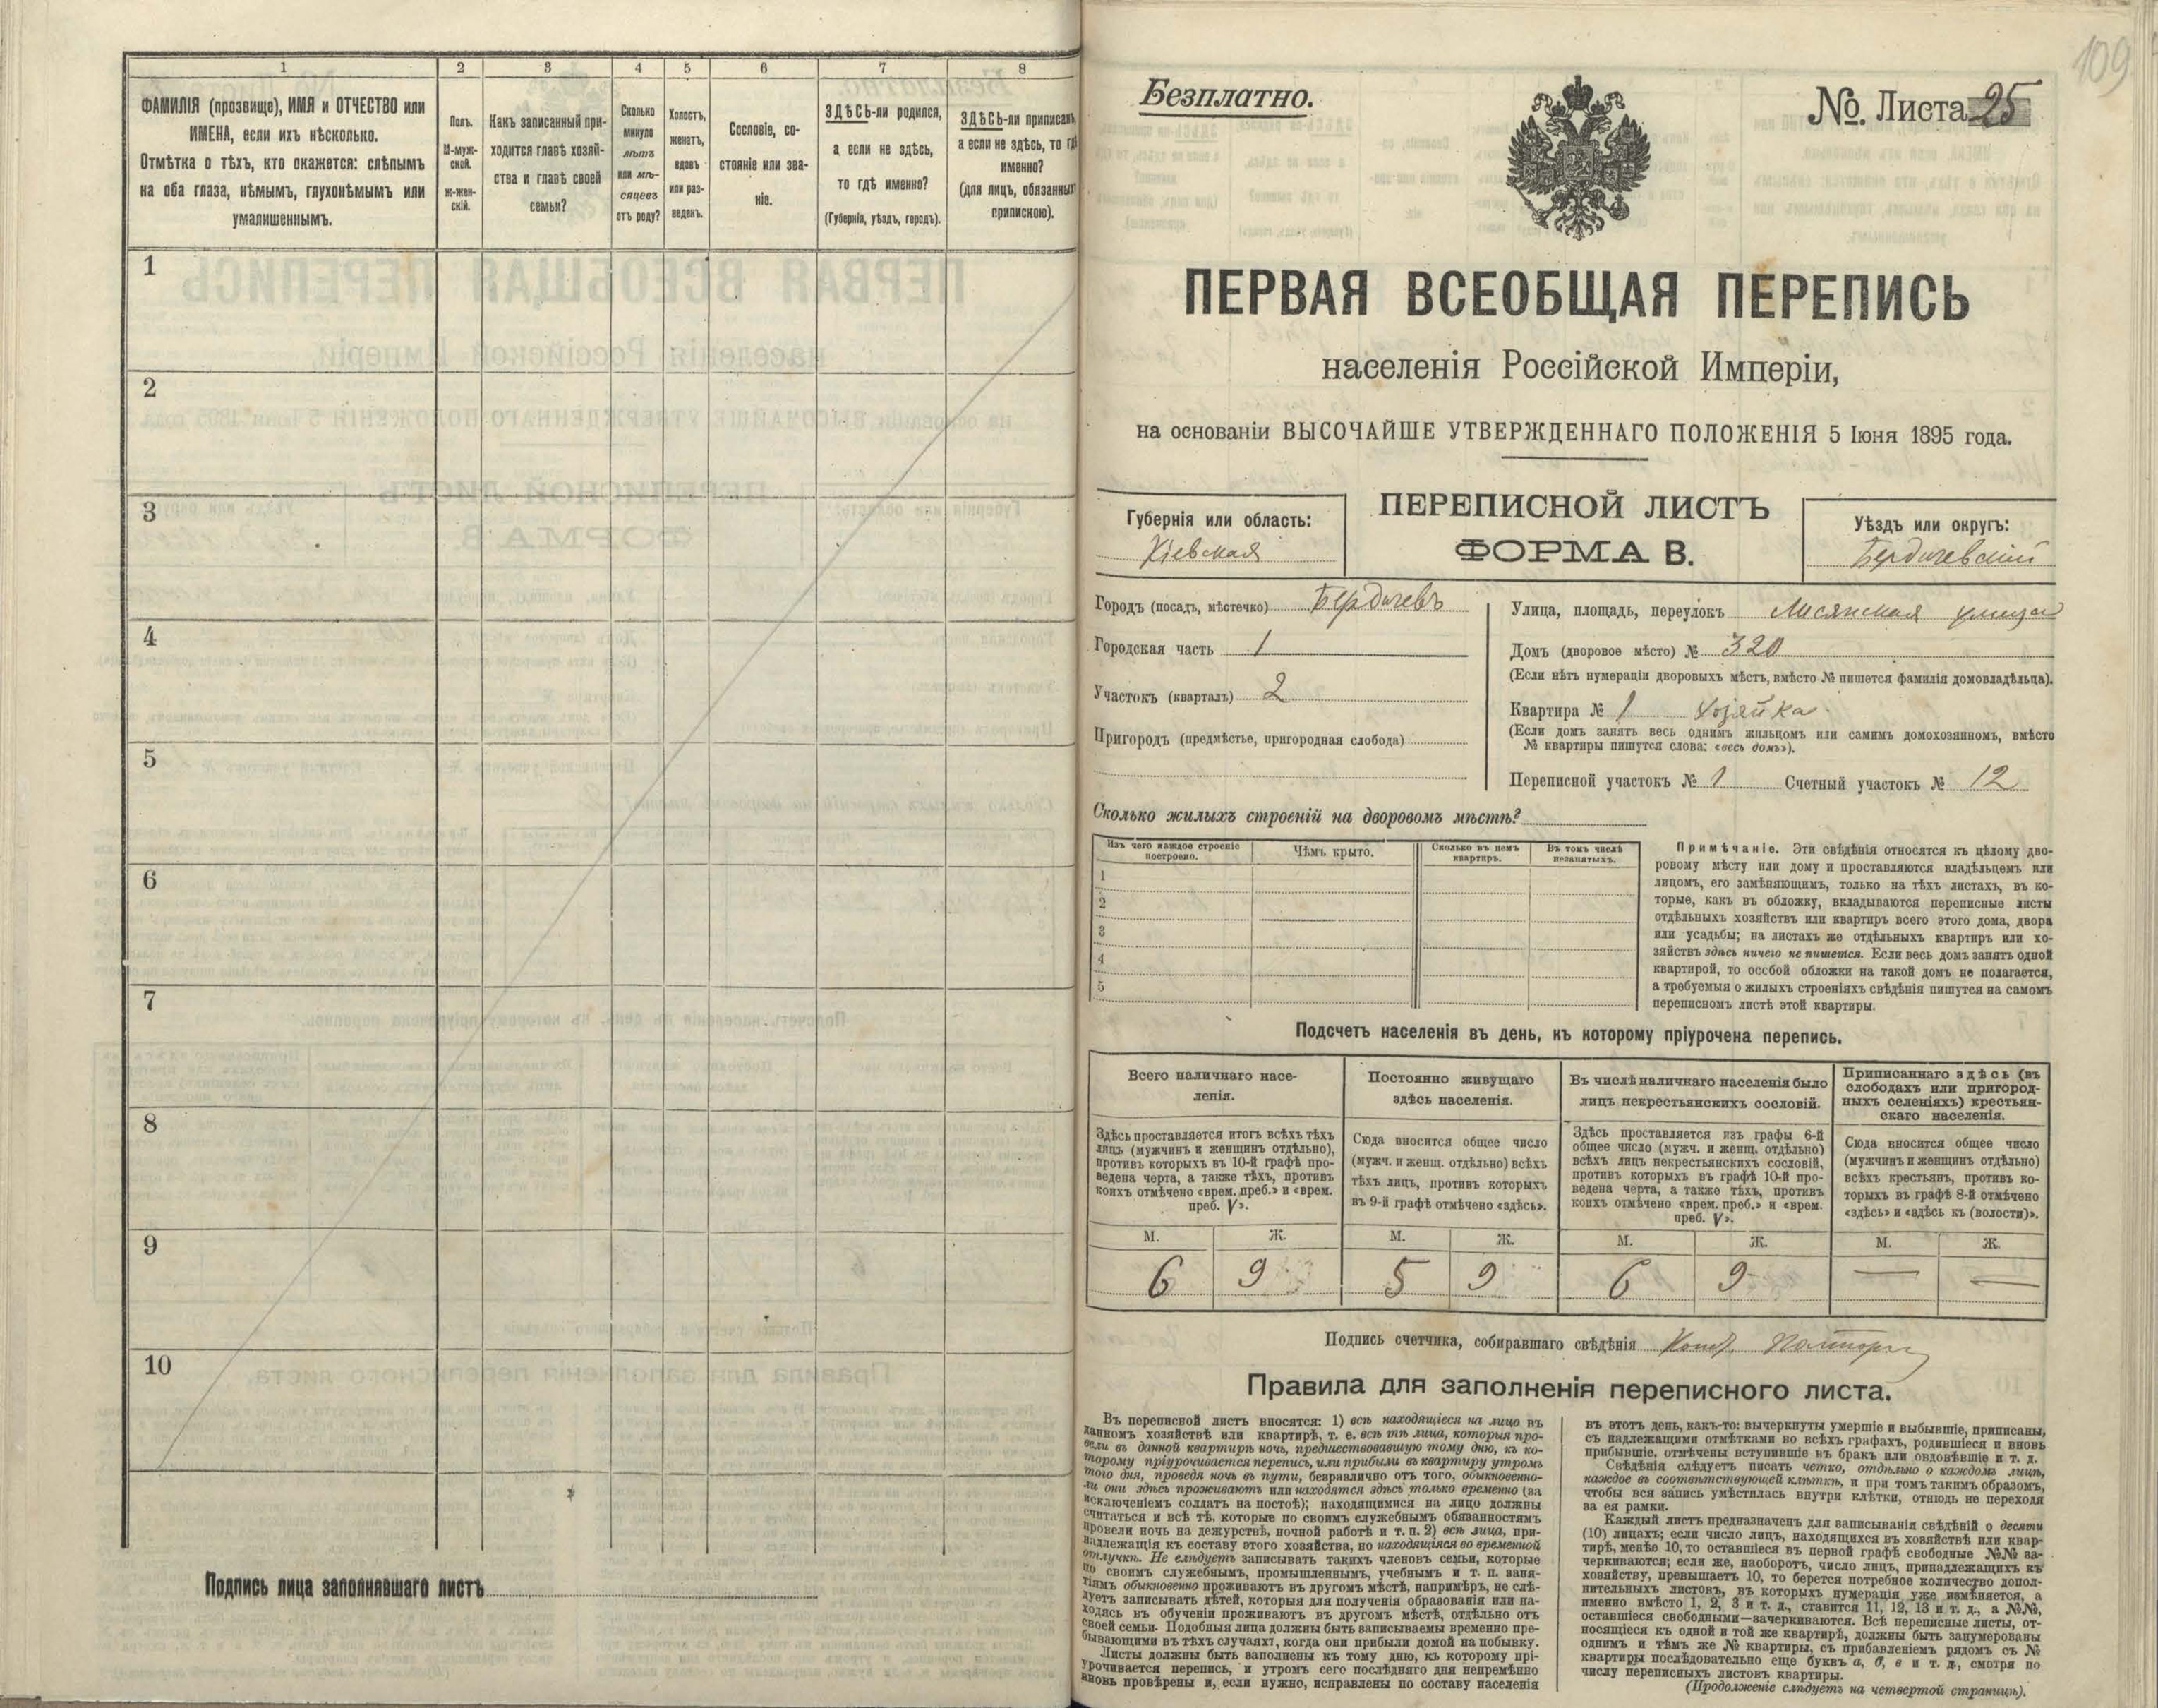 1 2 3 4 5 6 7 8
ФАМИЛІЯ (прозвище), ИМЯ и ОТЧЕСТВО или
ИМЕНА, если ихъ нѣсколько.
Отмѣтка о тѣхъ, кто окажется: слѣпымъ
на оба глаза, нѣмымъ, глухонѣмымъ или
умалишеннымъ.
Полъ.
М-муж-
ской.
Ж-жен-
скій.
Какъ записанный при-
ходится главѣ хозяй-
ства и главѣ своей
семьи?
Сколько
минуло
лѣтъ
или мѣ-
сяцевъ
отъ роду?
Холостъ,
женатъ,
вдовъ
или раз-
веденъ.
Сословіе, со-
стояніе или зва-
ніе.
ЗДѢСЬ-ли родился,
а если не здѣсь,
то гдѣ именно?
(Губернія, уѣздъ, городъ).
ЗДѢСЬ-ли приписанъ,
а если не здѣсь, то гдѣ
именно?
(для лицъ, обязанныхъ
припискою).
1
2
3
4
5
6
7
8
9
10
Подпись лица заполнявшаго листъ
109
Безплатно.
№. Листа 25
ПЕРВАЯ ВСЕОБЩАЯ ПЕРЕПИСЬ
населенія Россійской Имперіи,
на основаніи ВЫСОЧАЙШЕ УТВЕРЖДЕННАГО ПОЛОЖЕНІЯ 5 Іюня 1895 года.
Губернія или область:
Кіевская
ПЕРЕПИСНОЙ ЛИСТЪ
ФОРМА В.
Уѣздъ или округъ:
Бердичевскій
Городъ (посадъ, мѣстечко) Бердичевъ
Городская часть 1
Участокъ (кварталъ) 2
Пригородъ (предмѣстье, пригородная слобода)
Улица, площадь, переулокъ Лисянская улица
Домъ (дворовое мѣсто) № 320
(Если нѣтъ нумераціи дворовыхъ мѣстъ, вмѣсто № пишется фамилія домовладѣльца).
Квартира № 1 хозяйка
(Если домъ занятъ весь однимъ жильцомъ или самимъ домохозяиномъ, вмѣсто
№ квартиры пишутся слова: «весь домъ»).
Переписной участокъ № 1 Счетный участокъ № 12
Сколько жилыхъ строеній на дворовомъ мѣстѣ?
Изъ чего каждое строеніе
построено.
Чѣмъ крыто.
Сколько въ немъ
квартиръ.
Въ томъ числѣ
незанятыхъ.
1
2
3
4
5
Примѣчаніе. Эти свѣдѣнія относятся къ цѣлому дво-
ровому мѣсту или дому и проставляются владѣльцемъ или
лицомъ, его замѣняющимъ, только на тѣхъ листахъ, въ ко-
торые, какъ въ обложку, вкладываются переписные листы
отдѣльныхъ хозяйствъ или квартиръ всего этого дома, двора
или усадьбы; на листахъ же отдѣльныхъ квартиръ или хо-
зяйствъ здѣсь ничего не пишется. Если весь домъ занятъ одной
квартирой, то особой обложки на такой домъ не полагается,
а требуемыя о жилыхъ строеніяхъ свѣдѣнія пишутся на самомъ
переписномъ листѣ этой квартиры.
Подсчетъ населенія въ день, къ которому пріурочена перепись.
Всего наличнаго насе-
ленія.
Здѣсь проставляется итогъ всѣхъ тѣхъ
лицъ (мужчинъ и женщинъ отдѣльно),
противъ которыхъ въ 10-й графѣ про-
ведена черта, а также тѣхъ, противъ
коихъ отмѣчено «врем. преб.» и «врем.
преб. V».
Постоянно живущаго
здѣсь населенія.
Сюда вносится общее число
(мужч. и женщ. отдѣльно) всѣхъ
тѣхъ лицъ, противъ которыхъ
въ 9-й графѣ отмѣчено «здѣсь».
Въ числѣ наличнаго населенія было
лицъ некрестьянскихъ сословій.
Здѣсь проставляется изъ графы 6-й
общее число (мужч. и женщ. отдѣльно)
всѣхъ лицъ некрестьянскихъ сословій,
противъ которыхъ въ графѣ 10-й про-
ведена черта, а также тѣхъ, противъ
коихъ отмѣчено «врем. преб.» и «врем.
преб. V».
Приписаннаго здѣсь (въ
слободахъ или пригород-
ныхъ селеніяхъ) крестьян-
скаго населенія.
Сюда вносится общее число
(мужчинъ и женщинъ отдѣльно)
всѣхъ крестьянъ, противъ ко-
торыхъ въ графѣ 8-й отмѣчено
«здѣсь» и «здѣсь къ (волости)».
М. Ж. М. Ж. М. Ж. М. Ж.
6 9 5 9 6 9 — —
Подпись счетчика, собиравшаго свѣдѣнія
Правила для заполненія переписного листа.
Въ переписной листъ вносятся: 1) всѣ находящіеся на лицо въ
данномъ хозяйствѣ или квартирѣ, т. е. всѣ тѣ лица, которыя про-
вели въ данной квартирѣ ночь, предшествовавшую тому дню, къ ко-
торому пріурочивается перепись, или прибыли въ квартиру утромъ
того дня, проведя ночь въ пути, безразлично отъ того, обыкновенно-
ли они здѣсь проживаютъ или находятся здѣсь только временно (за
исключеніемъ солдатъ на постоѣ); находящимися на лицо должны
считаться и всѣ тѣ, которые по своимъ служебнымъ обязанностямъ
провели ночь на дежурствѣ, ночной работѣ и т. п. 2) всѣ лица, при-
надлежащія къ составу этого хозяйства, но находящіяся во временной
отлучкѣ. Не слѣдуетъ записывать такихъ членовъ семьи, которые
по своимъ служебнымъ, промышленнымъ, учебнымъ и т. п. заня-
тіямъ обыкновенно проживаютъ въ другомъ мѣстѣ, напримѣръ, не слѣ-
дуетъ записывать дѣтей, которыя для полученія образованія или на-
ходясь въ обученіи проживаютъ въ другомъ мѣстѣ, отдѣльно отъ
своей семьи. Подобныя лица должны быть записываемы временно пре-
бывающими въ тѣхъ случаяхъ, когда они прибыли домой на побывку.
Листы должны быть заполнены къ тому дню, къ которому прі-
урочивается перепись, и утромъ сего послѣдняго дня непремѣнно
вновь провѣрены и, если нужно, исправлены по составу населенія
въ этотъ день, какъ-то: вычеркнуты умершіе и выбывшіе, приписаны,
съ надлежащими отмѣтками во всѣхъ графахъ, родившіеся и вновь
прибывшіе, отмѣчены вступившіе въ бракъ или овдовѣвшіе и т. д.
Свѣдѣнія слѣдуетъ писать четко, отдѣльно о каждомъ лицѣ,
каждое въ соотвѣтствующей клѣткѣ, и при томъ такимъ образомъ,
чтобы вся запись умѣстилась внутри клѣтки, отнюдь не переходя
за ея рамки.
Каждый листъ предназначенъ для записыванія свѣдѣній о десяти
(10) лицахъ; если число лицъ, находящихся въ хозяйствѣ или квар-
тирѣ, менѣе 10, то оставшіеся въ первой графѣ свободные №№ за-
черкиваются; если же, наоборотъ, число лицъ, принадлежащихъ къ
хозяйству, превышаетъ 10, то берется потребное количество допол-
нительныхъ листовъ, въ которыхъ нумерація уже измѣняется, а
именно вмѣсто 1, 2, 3 и т. д., ставится 11, 12, 13 и т. д., а №№,
оставшіеся свободными—зачеркиваются. Всѣ переписные листы, от-
носящіеся къ одной и той же квартирѣ, должны быть занумерованы
однимъ и тѣмъ же № квартиры, съ прибавленіемъ рядомъ съ №
квартиры послѣдовательно еще буквъ а, б, в и т. д., смотря по
числу переписныхъ листовъ квартиры.
(Продолженіе слѣдуетъ на четвертой страницѣ).